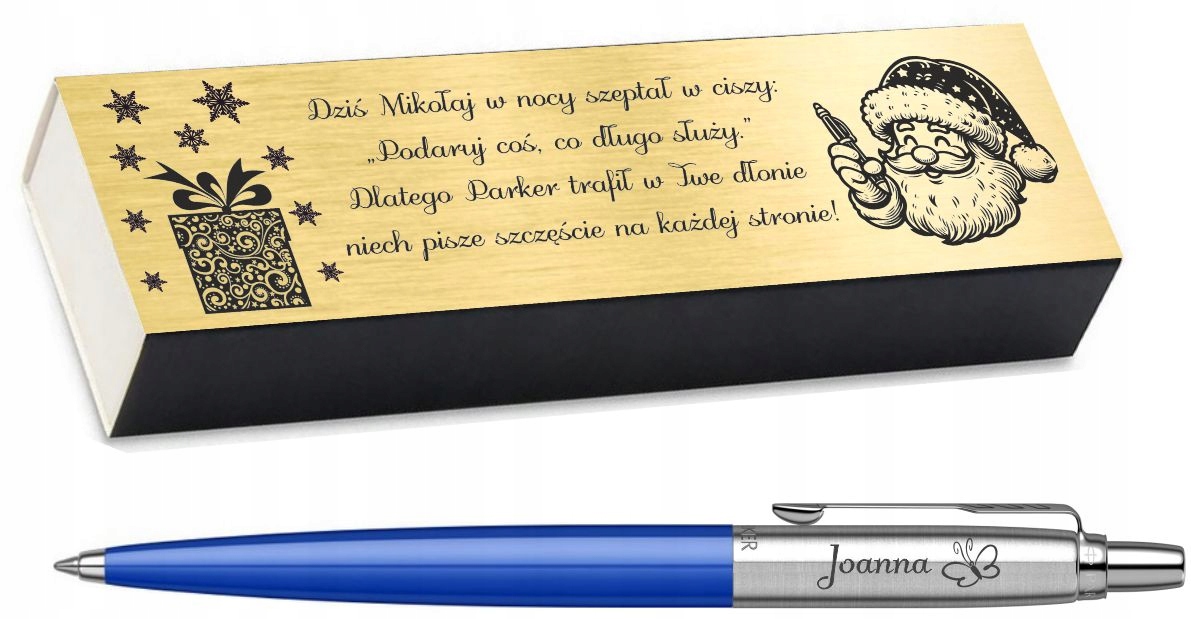 Dziś Mikołaj w nocy szeptał w ciszy:
„Podaruj coś, co długo służy.”
Dlatego Parker trafił w Twe dłonie
niech pisze szczęście na każdej stronie!
KER
Joanna